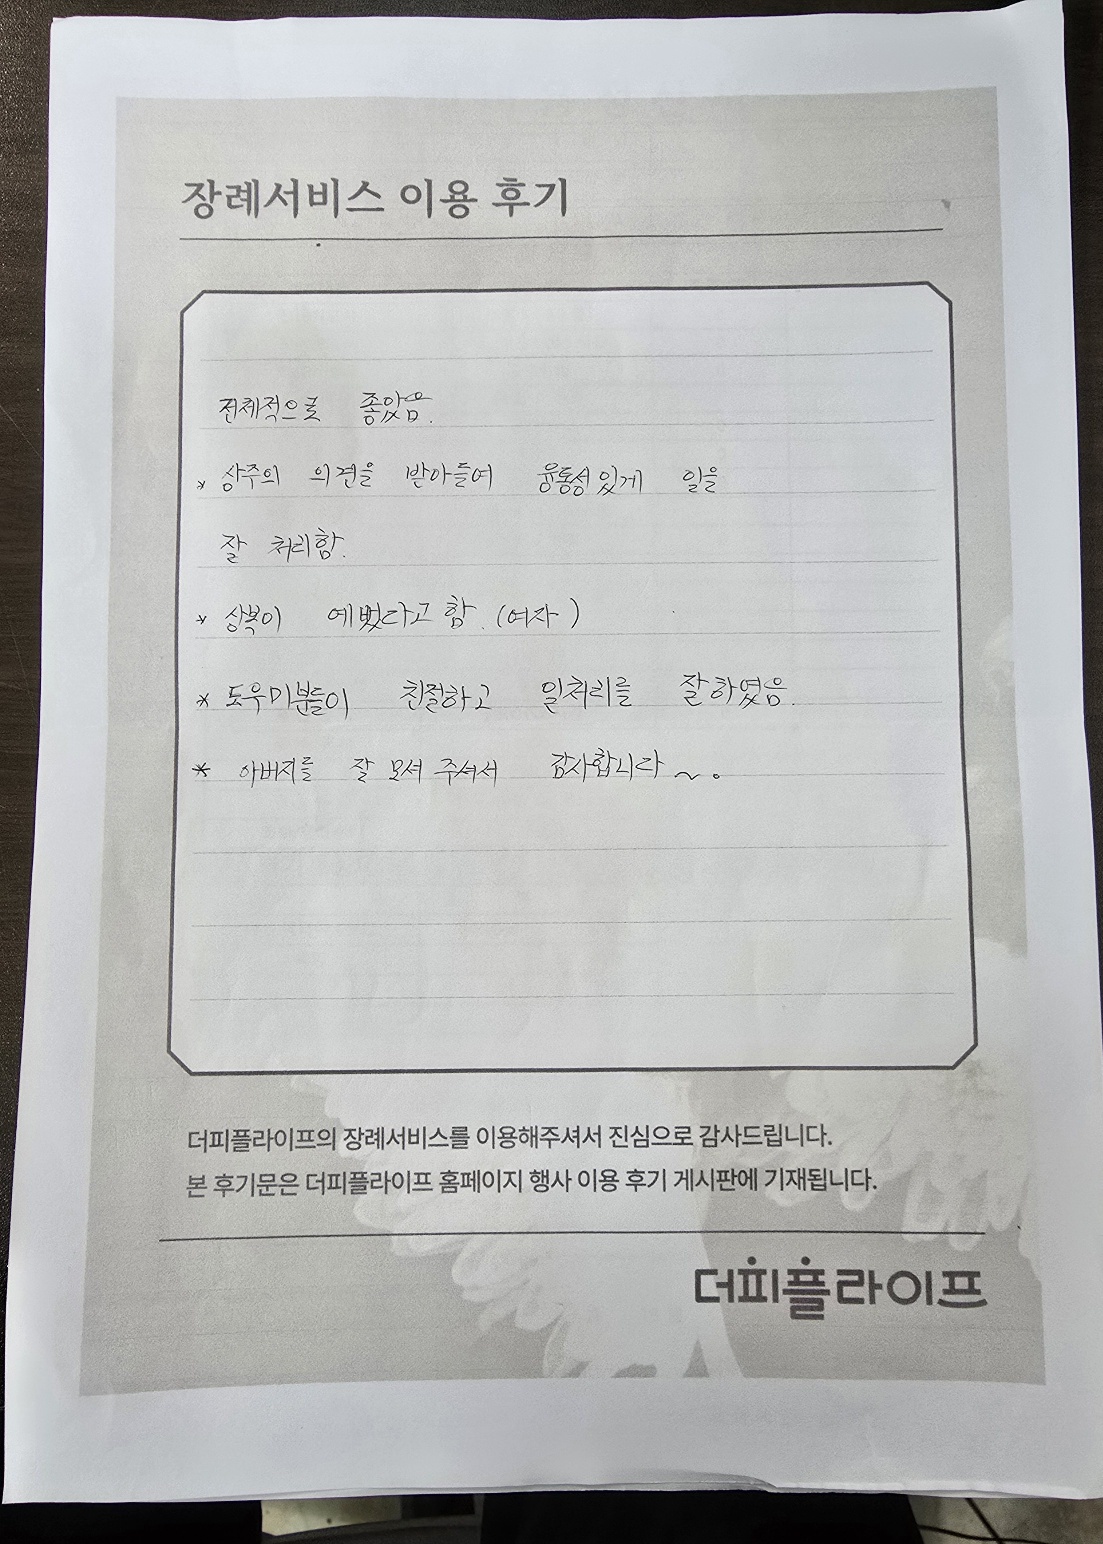 장례서비스 이용 후기
전체적으로 좋았음.
* 상주의 의견을 받아들여 융통성있게 일을
잘 처리함.
* 상복이 예뻤다고 함. (여자)
* 도우미분들이 친절하고 일처리를 잘하였음.
* 아버지를 잘 모셔 주셔서 감사합니다~.
더피플라이프의 장례서비스를 이용해주셔서 진심으로 감사드립니다.
본 후기문은 더피플라이프 홈페이지 행사 이용 후기 게시판에 기재됩니다.
더피플라이프